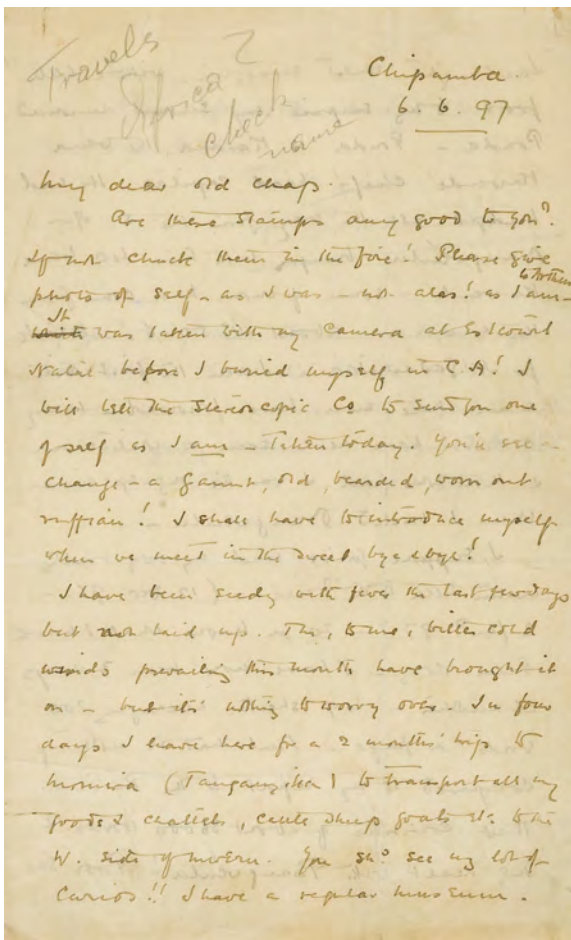 Travels ?
Africa
check
name
Chipamba.
6.6.97
My dear old chap.
Are these stamps any good to you?
If not chuck them in the fire! Please give
to Arthur
photo of self – as I was – not alas! as I am –
It
which was taken with my camera at Estcourt
Natal before I buried myself in C A! I
will tell the Stereoscopic Co to send you one
of self as I am – Taken today. You'll see –
change – a gaunt, old, bearded, worn out
ruffian! I shall have to introduce myself
when we meet in the sweet bye & bye!
I have been seedy with fever the last few days
but not laid up. The, to me, bitter cold
winds prevailing this month have brought it
on – but its' nothing to worry over. In four
days I leave here for a 2 months' trip to
(Tanganyika) to transport all my
goods & chattels, cattle sheep goats etc to the
W. side of Mweru. You shd see my lot of
Curios!! I have a regular museum.